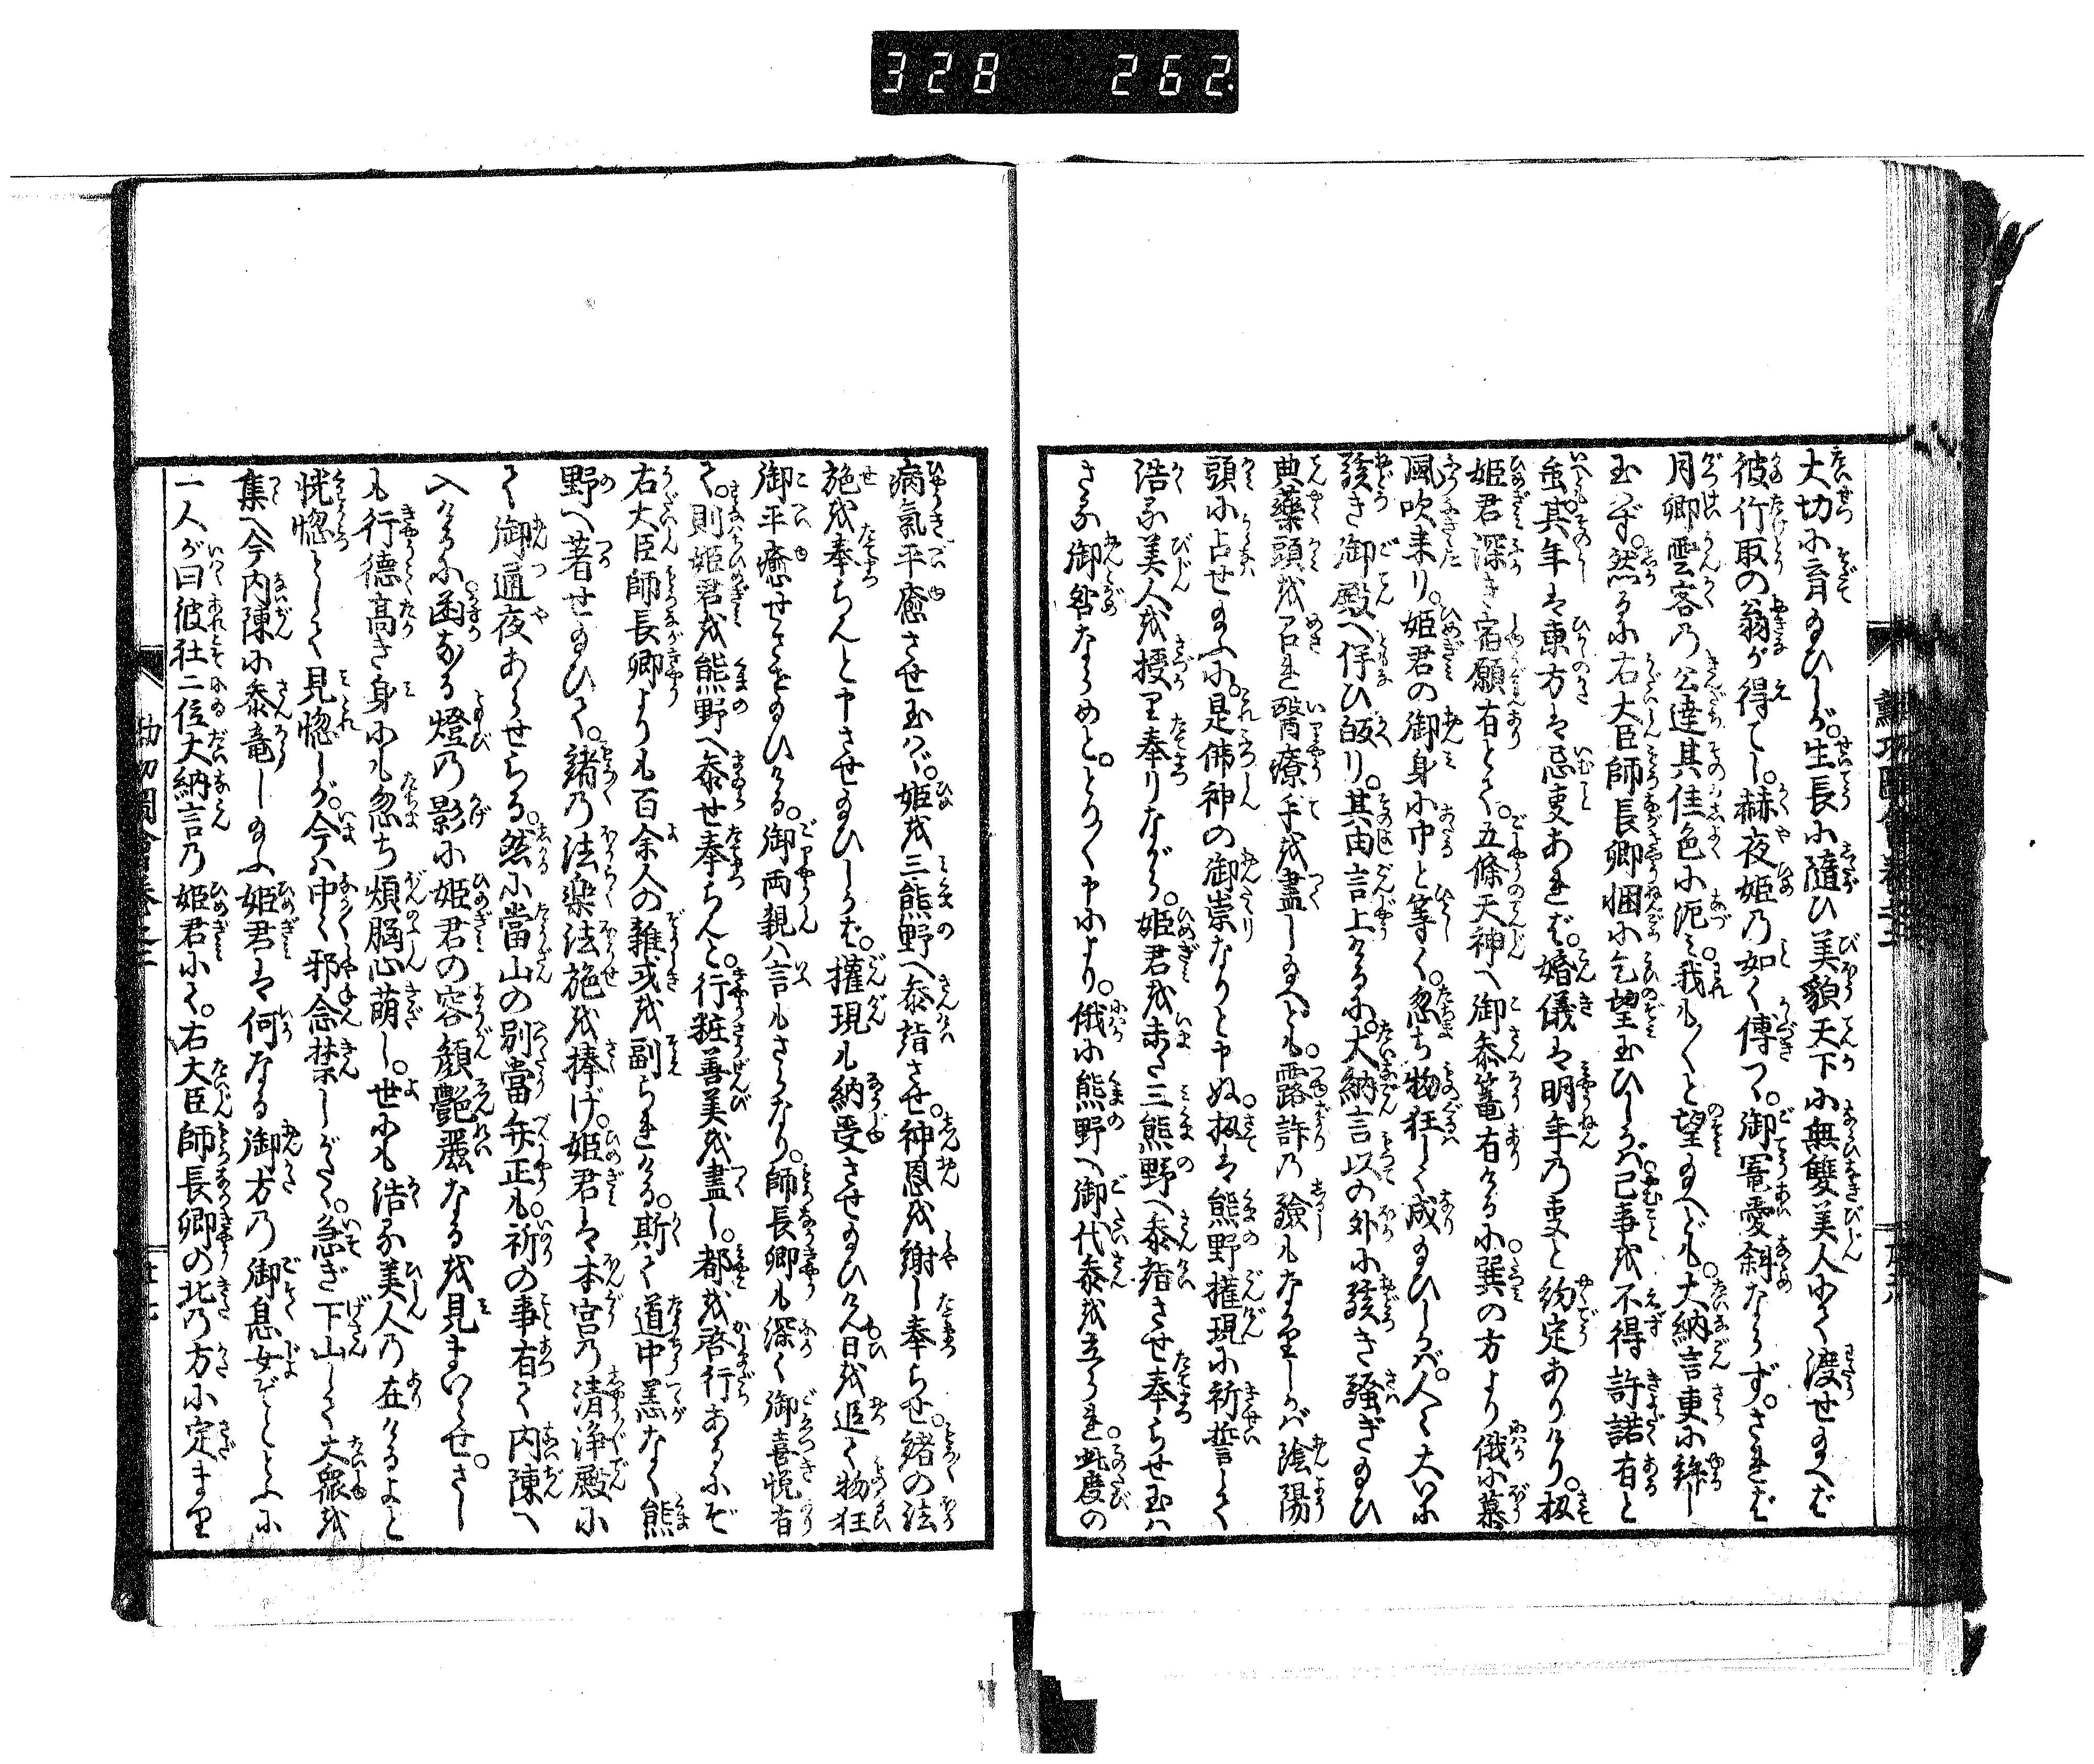 328 262
大切に育給ひしが。生長に随ひ美貌天下に無雙美人にて渡せ給へば
彼竹取の翁が得てし。赫夜姫の如く傅つ。御寵愛斜ならず。されば
月卿雲客の公達其佳色に泥み。我も〳〵と望給へども。大納言更に辞し
玉はず。然るに右大臣師長卿悃に乞望玉ひしかば。已事を不得許諾有と
虽。其年は東方は忌吏あれば。婚儀は明年の吏と約定ありけり。扨
姫君深き宿願有とて。五條天神へ御参篭有けるに。巽の方より俄に暴
風吹来り。姫君の御身に中と等く。忽ち物狂しく成給ひしかば。人々大いに
駭き御殿へ伴ひ皈り。其由言上けるに。大納言以の外に駭き騒ぎ給ひ
典藥頭を召れ醫療手を盡し給へども。露許の験もなかりしかば陰陽
頭に占せ給ふに。是佛神の御祟なりと申ぬ。扨は熊野権現に祈誓して
浩る美人を授り奉りながら。姫君を未三熊野へ参詣させ奉らせ玉は
ざる御咎ならめと。とりく申により。俄に熊野へ御代参を立られ。此度の
病氣平癒させ玉はゞ。姫を三熊野へ参詣させ。神恩を謝し奉らせ。諸の法
施を奉らんと申させ給ひしかば。權現も納受させ給ひけん日を追て物狂
御平癒せさせ給ひける。御両親は言もさらなり。師長卿も深く御喜悦有
て。則姫君を熊野へ参せ奉らんと。行粧善美を盡し。都を啓行あるにぞ
右大臣師長卿よりも百余人の雑式を副られける。斯て道中恙なく熊
野へ著せ給ひて。諸の法楽法施を捧げ。姫君は本宮の清浄殿に
て御通夜あらせらる。然に當山の別當弁正も。祈の事有て内陳へ
入けるに。函なる燈の影に姫君の容顔艶麗なるを見まいらせ。さし
も行徳高き身にも忽ち煩脳心萌し。世にも浩る美人の在けるよと
恍惚として見惚しが。今は中々邪念禁じがたく。急ぎ下山して大衆を
集へ今内陳に参篭し給ふ姫君は何なる御方の御息女ぞととふに
一人が曰彼社二位大納言の姫君にて。右大臣師長卿の北の方に定まり